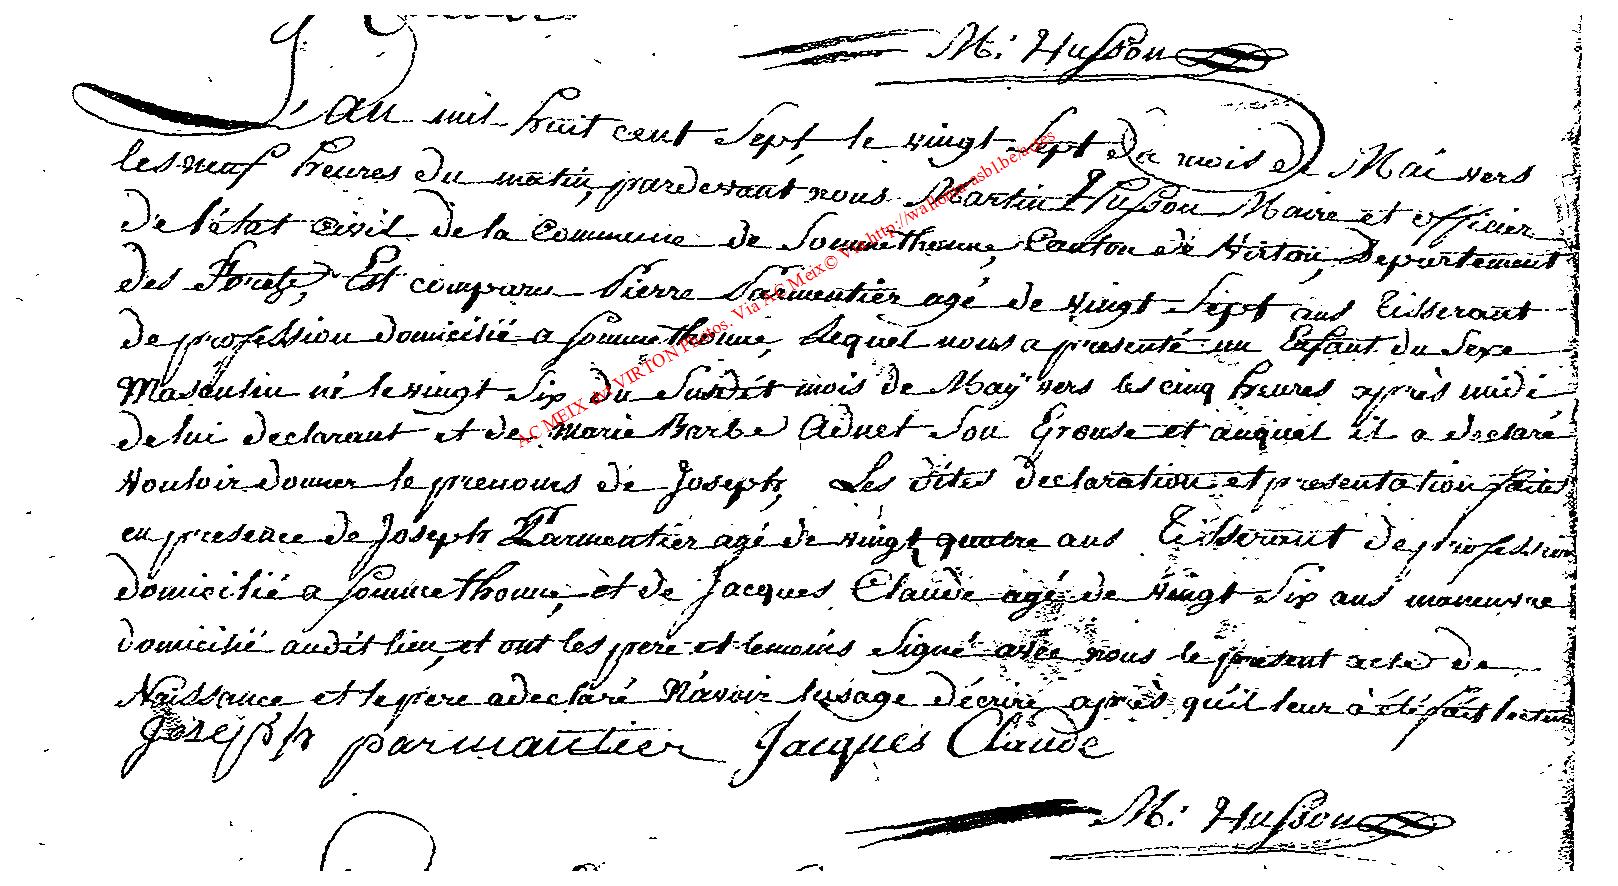 M. Husson
L'an mil huit cent Sept, le vingt Sept du mois de Mai vers
les neuf heures du matin, pardevant nous Martin Husson Maire et officier
de l'état civil de la Commune de Sommethonne, Canton de Virton, Departement
des Forets, Est comparu Pierre Parmentier agé de vingt Sept ans Tisserant
de profession domicilié a Sommethonne, Lequel nous a presenté un Enfant du Sexe
Masculin né le vingt Six du Susdit mois de Maÿ vers les cinq heures après midi
de lui declarant et de Marie Barbe Adnet Son Epouse et auquel il a declaré
vouloir donner le prenoms de Joseph, Les dites declaration et presentation faites
en presence de Joseph Parmentier agé de vingt quatre ans Tisserant de profession
domicilié a Sommethonne, et de Jacques Claude agé de vingt Six ans manuvre
domicilié audit lieu, et ont les pere et temoins Signé avec nous le present acte de
Naissance et le pere a declaré N'avoir lusage décrire après qu'il leur à été fait lecture
Joseph parmantier Jacques Claude
M. Husson
AC MEIX dt VIRTON Photos. Via AC Meix© Via http://wallonia-asbl.be/actes